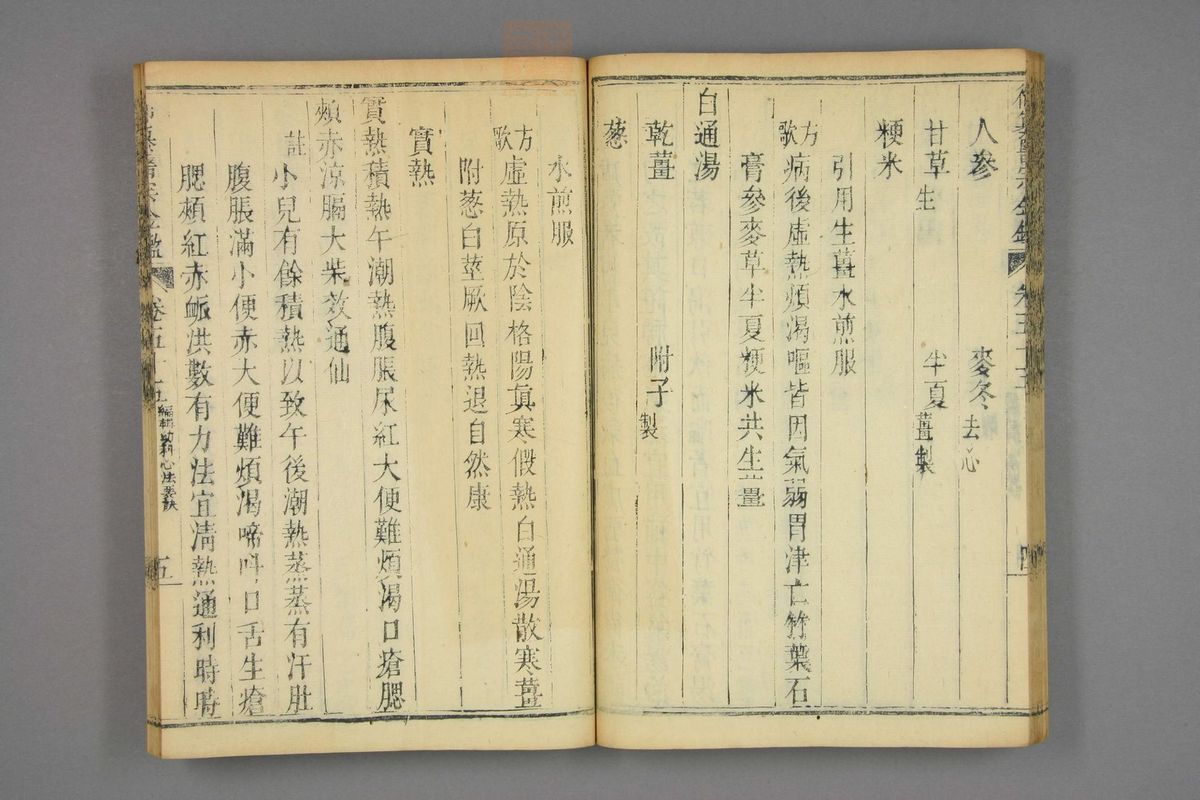 人參 麥冬去心
甘草生 半夏薑製
粳米
引用生薑水煎服
方歌 病後虛熱煩渴嘔皆因氣弱胃津亡竹葉石
膏參麥草半夏粳米共生薑
白通湯
乾薑 附子製
葱
水煎服
方歌 虛熱原於陰格陽真寒假熱白通湯散寒薑
附葱白莖厥回熱退自然康
實熱
實熱積熱午潮熱腹脹尿紅大便難煩渴口瘡腮
頰赤涼膈大柴效通仙
註 小兒有餘積熱以致午後潮熱蒸蒸有汗肚
腹脹滿小便赤大便難煩渴啼叫口舌生瘡
腮頰紅赤脈洪數有力法宜清熱通利時時
醫宗金鑑 卷五十五 編輯幼科心法要訣 五